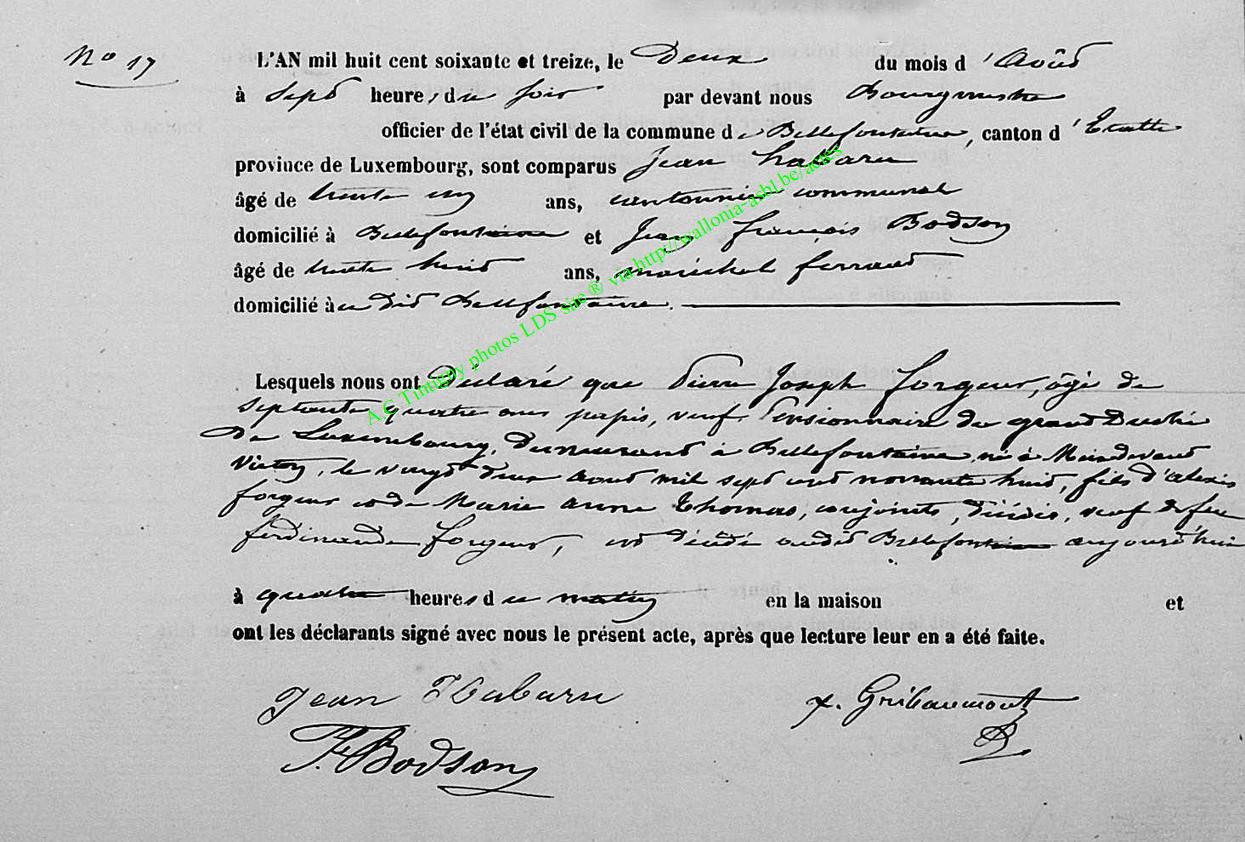 No 17
L'AN mil huit cent soixante et treize, le Deux du mois d'Août
à Sept heures du soir par devant nous Bourgmestre
officier de l'état civil de la commune de Bellefontaine, canton d'Etalle
province de Luxembourg, sont comparus Jean Habaru
âgé de trente ans, cantonnier communal
domicilié à Bellefontaine et Jean François Bodson
âgé de trente huit ans, maréchal ferrant
domicilié à dit Bellefontaine.
Lesquels nous ont Déclaré que Pierre Joseph Forgeur, âgé de
septante quatre ans passés, veuf, Pensionnaire du grand Duché
de Luxembourg, demeurant à Bellefontaine, né à devant
Virton, le vingt deux août mil sept cent nonante huit, fils d'alexis
forgeur et de Marie anne Thomas, conjoints, décédés, veuf de feu
ferdinande forgeur, est décédé audit Bellefontaine aujourd'hui
à quatre heures du matin en la maison et
ont les déclarants signé avec nous le présent acte, après que lecture leur en a été faite.
Jean Habaru
x. Gribaumont
Bodson
A.G Timügny photos LDS site ® via http://wallonia-asbl.be/actes